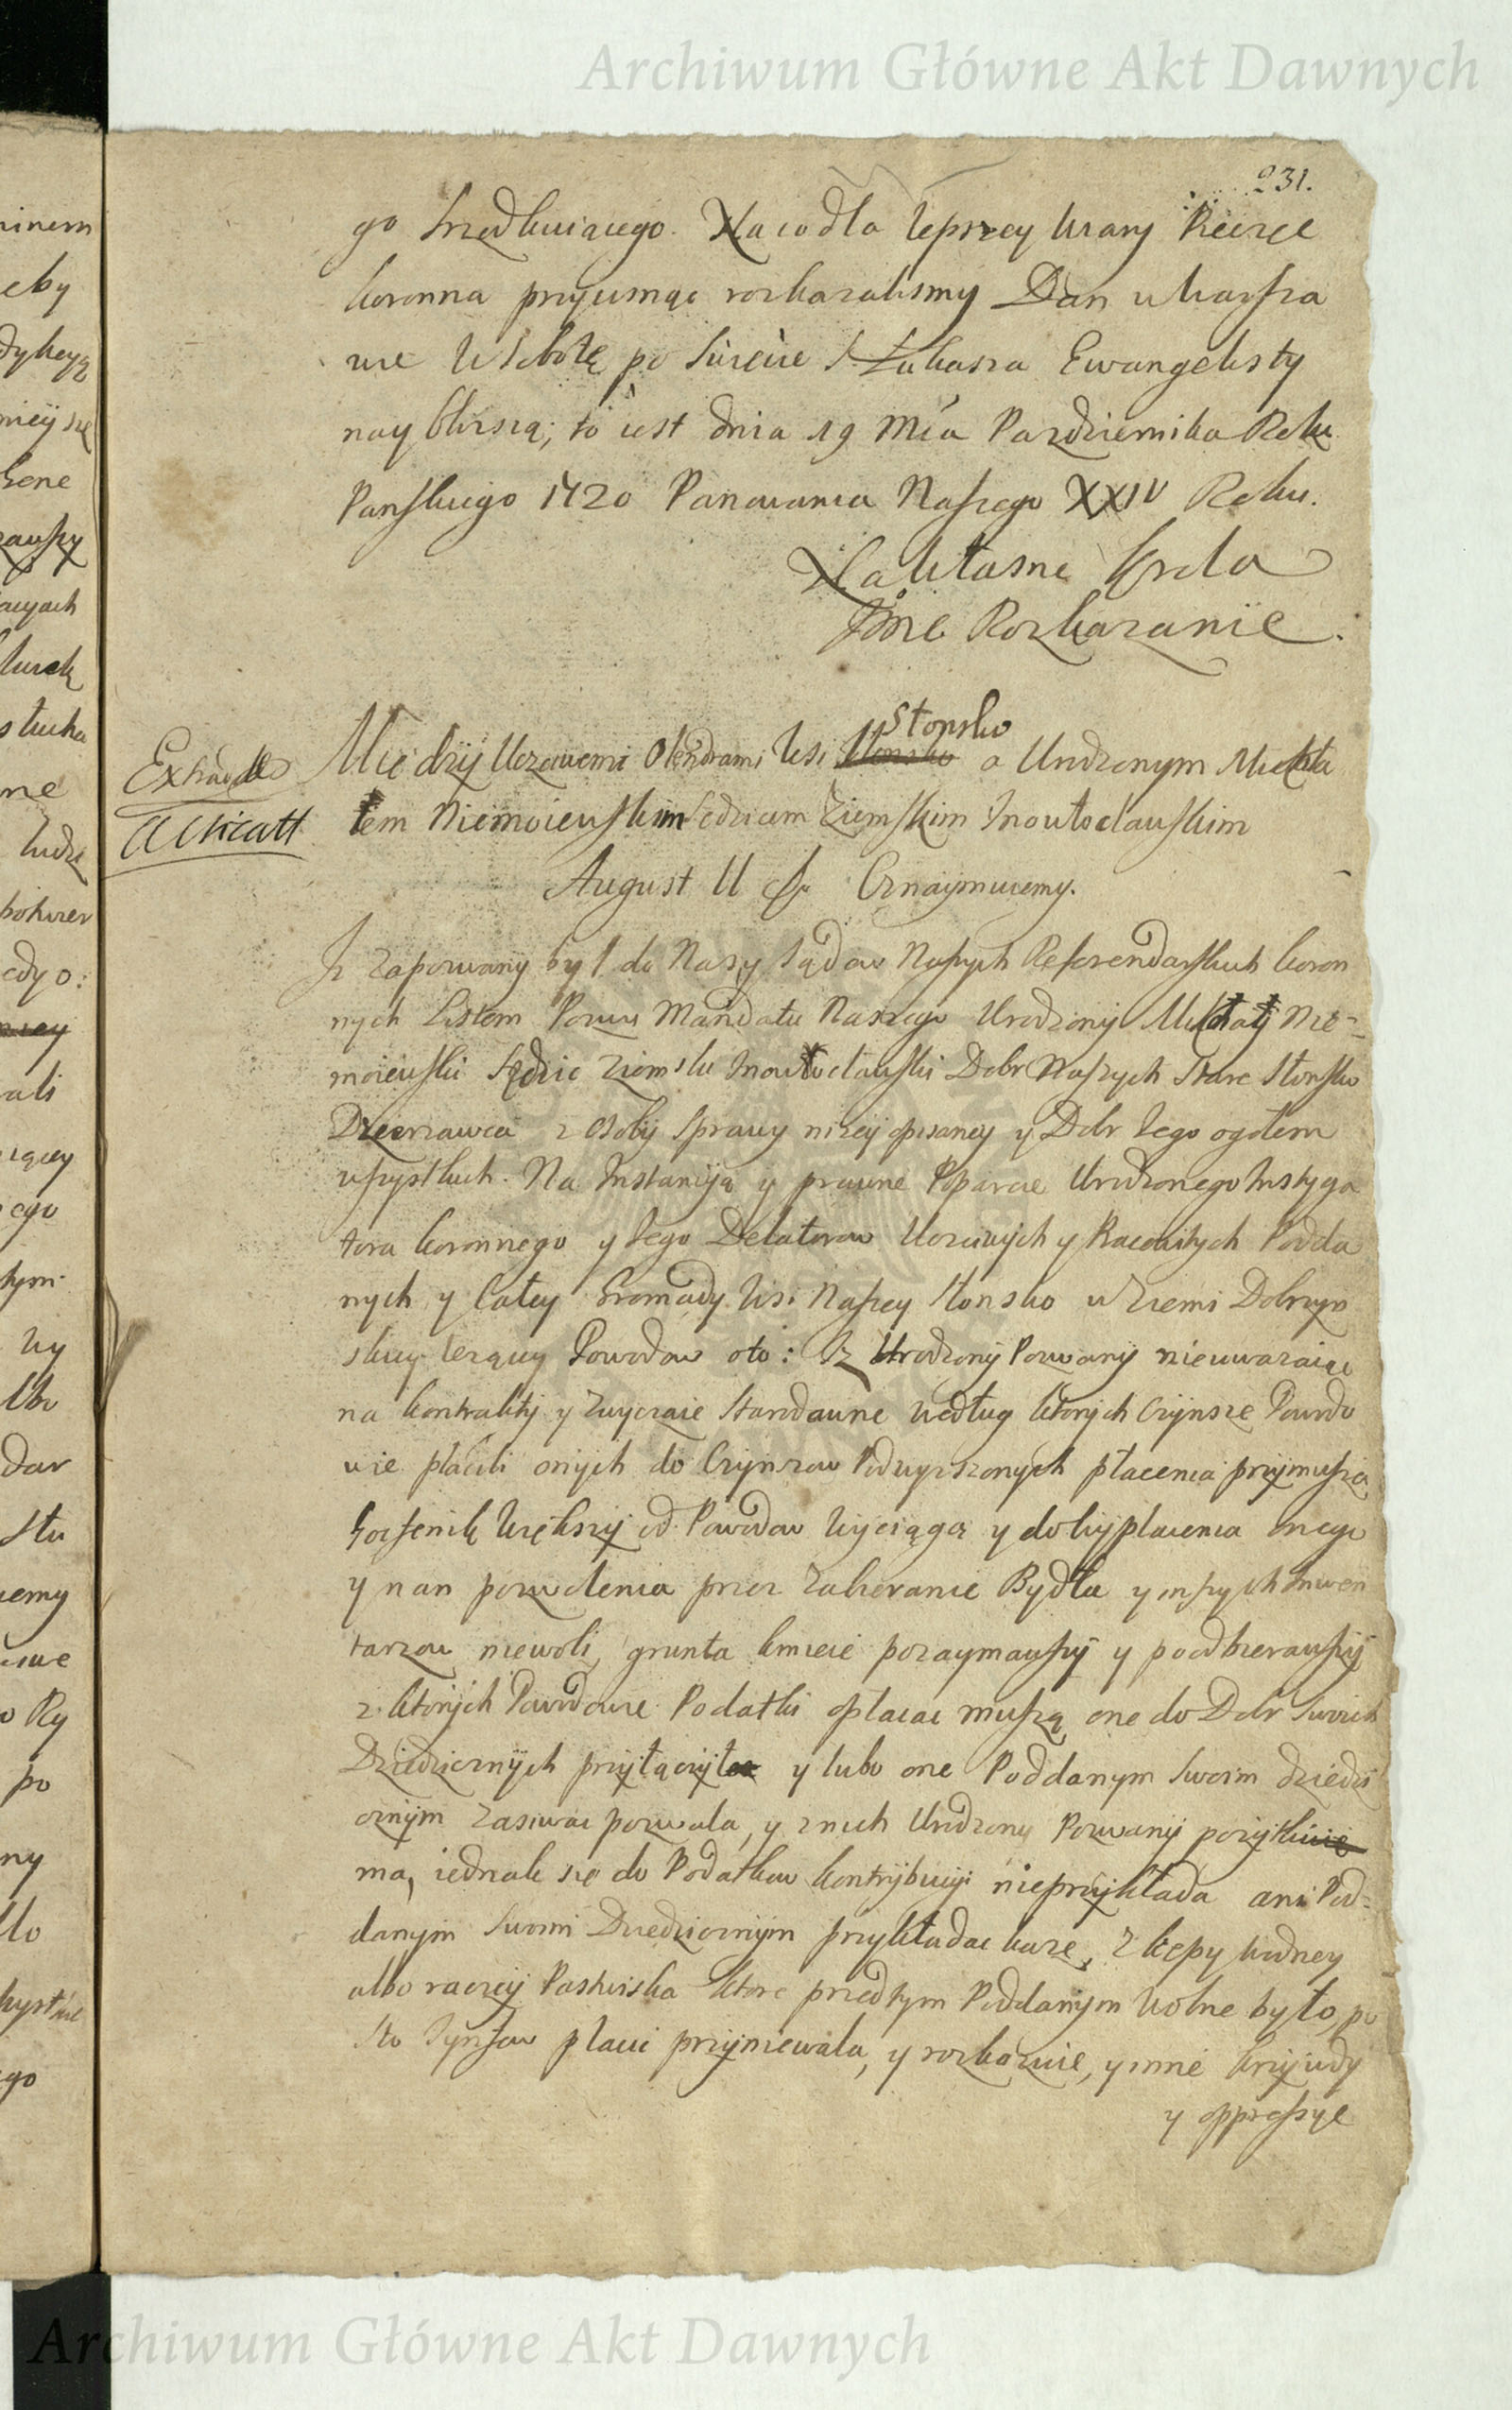 Archiwum Główne Akt Dawnych
231.
go Srzedkuiącego. Na co dla lepszey wiary Pieczęć
koronna przycisnąć rozkazalismy Dan w Warsza
wie w Sobotę po Swięcie S. Łukasza Ewangelisty
nay bliższą; to iest dnia 19 Mca Pazdziernika Roku
Panskiego 1720 Panowania Naszego XXIV Roku.
Na Własne Krola
Jmc Rozkazanie.
Extrad
Miedzy Uczciwemi Olendrami Wsi Słonsko
a Urodzonym Mikoła
iem Niemoiewskim Sędzium Ziemskim Inowłocławskim
August II Oznaymuiemy.
Iz zapozwany był do Nas y Sądow Naszych Referendarskich koron
nych Listem Pozwu Mandatu Naszego Urodzony Mikołay Nie-
moiewski Sędzia Ziemski Inowłocławski Dobr Naszych Stare Słonsko
Dzierzawca z Osoby Sprawy nizey opisaney y Dobr Jego ogołem
wszystkich. Na Instancyą y prawne Poparcie Urodzonego Instyga
tora koronnego y Jego Delatorow Uczciwych y Pracowitych Podda
nych y Całey Gromady Wsi Naszey Słonsko w Ziemi Dobrzyn
skiey lezącey Powodow oto: Iz Urodzony Pozwany nieuwazaiąc
na kontrakty y Zwyczaie Starodawne według ktorych Czynsze Powodo
wie płacili onych do Czynszow Podwyzszonych płacenia przymusza
Hoszenik większy od Powodow wyciąga y do wypłacenia onego
y nan pozwolenia przez zabieranie Bydła y inszych Inwen
tarzow niewoli, grunta kmiecie pozaymawszy y poodbierawszy
z ktorych Powodowie Podatki opłacac muszą one do Dobr Swoich
Dziedzicznych przyłączył y lubo one Poddanym Swoim dziedzi
cznym zasiwac pozwala, y z nich Urodzony Pozwany pozytki
ma, iednak się do Podatkow kontrybucyi nieprzykłada ani Pod-
danym Swoim Dziedzicznym przykładac kaze, z kępy wodney
albo raczey Pastwiska ktore przedtym Poddanym wolne było, po
sto Tynfow płacic przyniewala, y rozkazuie, y inne krzywdy
y oppressye
Archiwum Główne Akt Dawnych